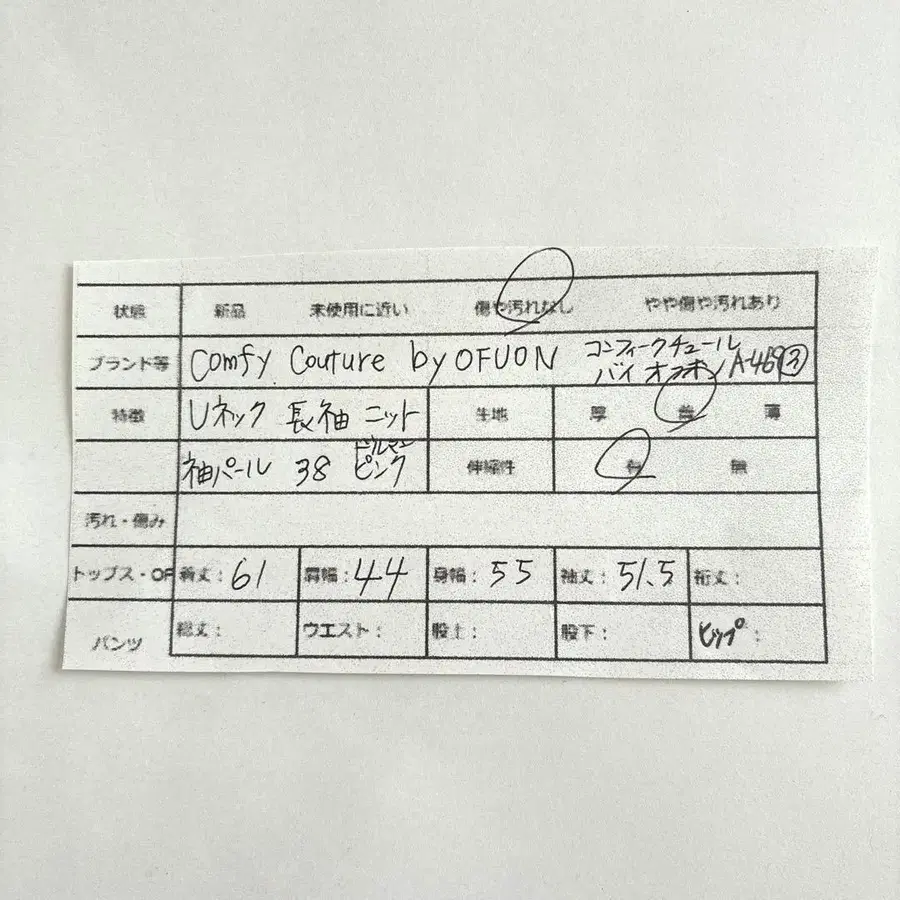 状態 新品 未使用に近い 傷や汚れなし やや傷や汚れあり
ブランド等 Comfy Couture by OFUON コンフィークチュール
バイ オフオン A-469③
特徴 Uネック 長袖 ニット 生地 厚 普 薄
ドルマン
袖パール 38 ピンク 伸縮性 有 無
汚れ・傷み
トップス・OP 着丈: 61 肩幅: 44 身幅: 55 袖丈: 51.5 裄丈:
パンツ 総丈: ウエスト: 股上: 股下: ヒップ: